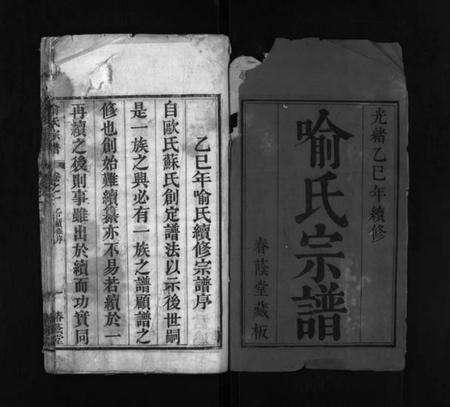 光緒乙巳年續修
喻氏宗譜
春蔭堂藏板
乙巳年喻氏續修宗譜序
自歐氏蘇氏創定譜法以示後世嗣
是一族之興必有一族之譜顧譜之
修也創始難續纂亦不易若續於一
再續之後則事雖出於續而功實同
氏宗譜
卷之一
春蔭堂